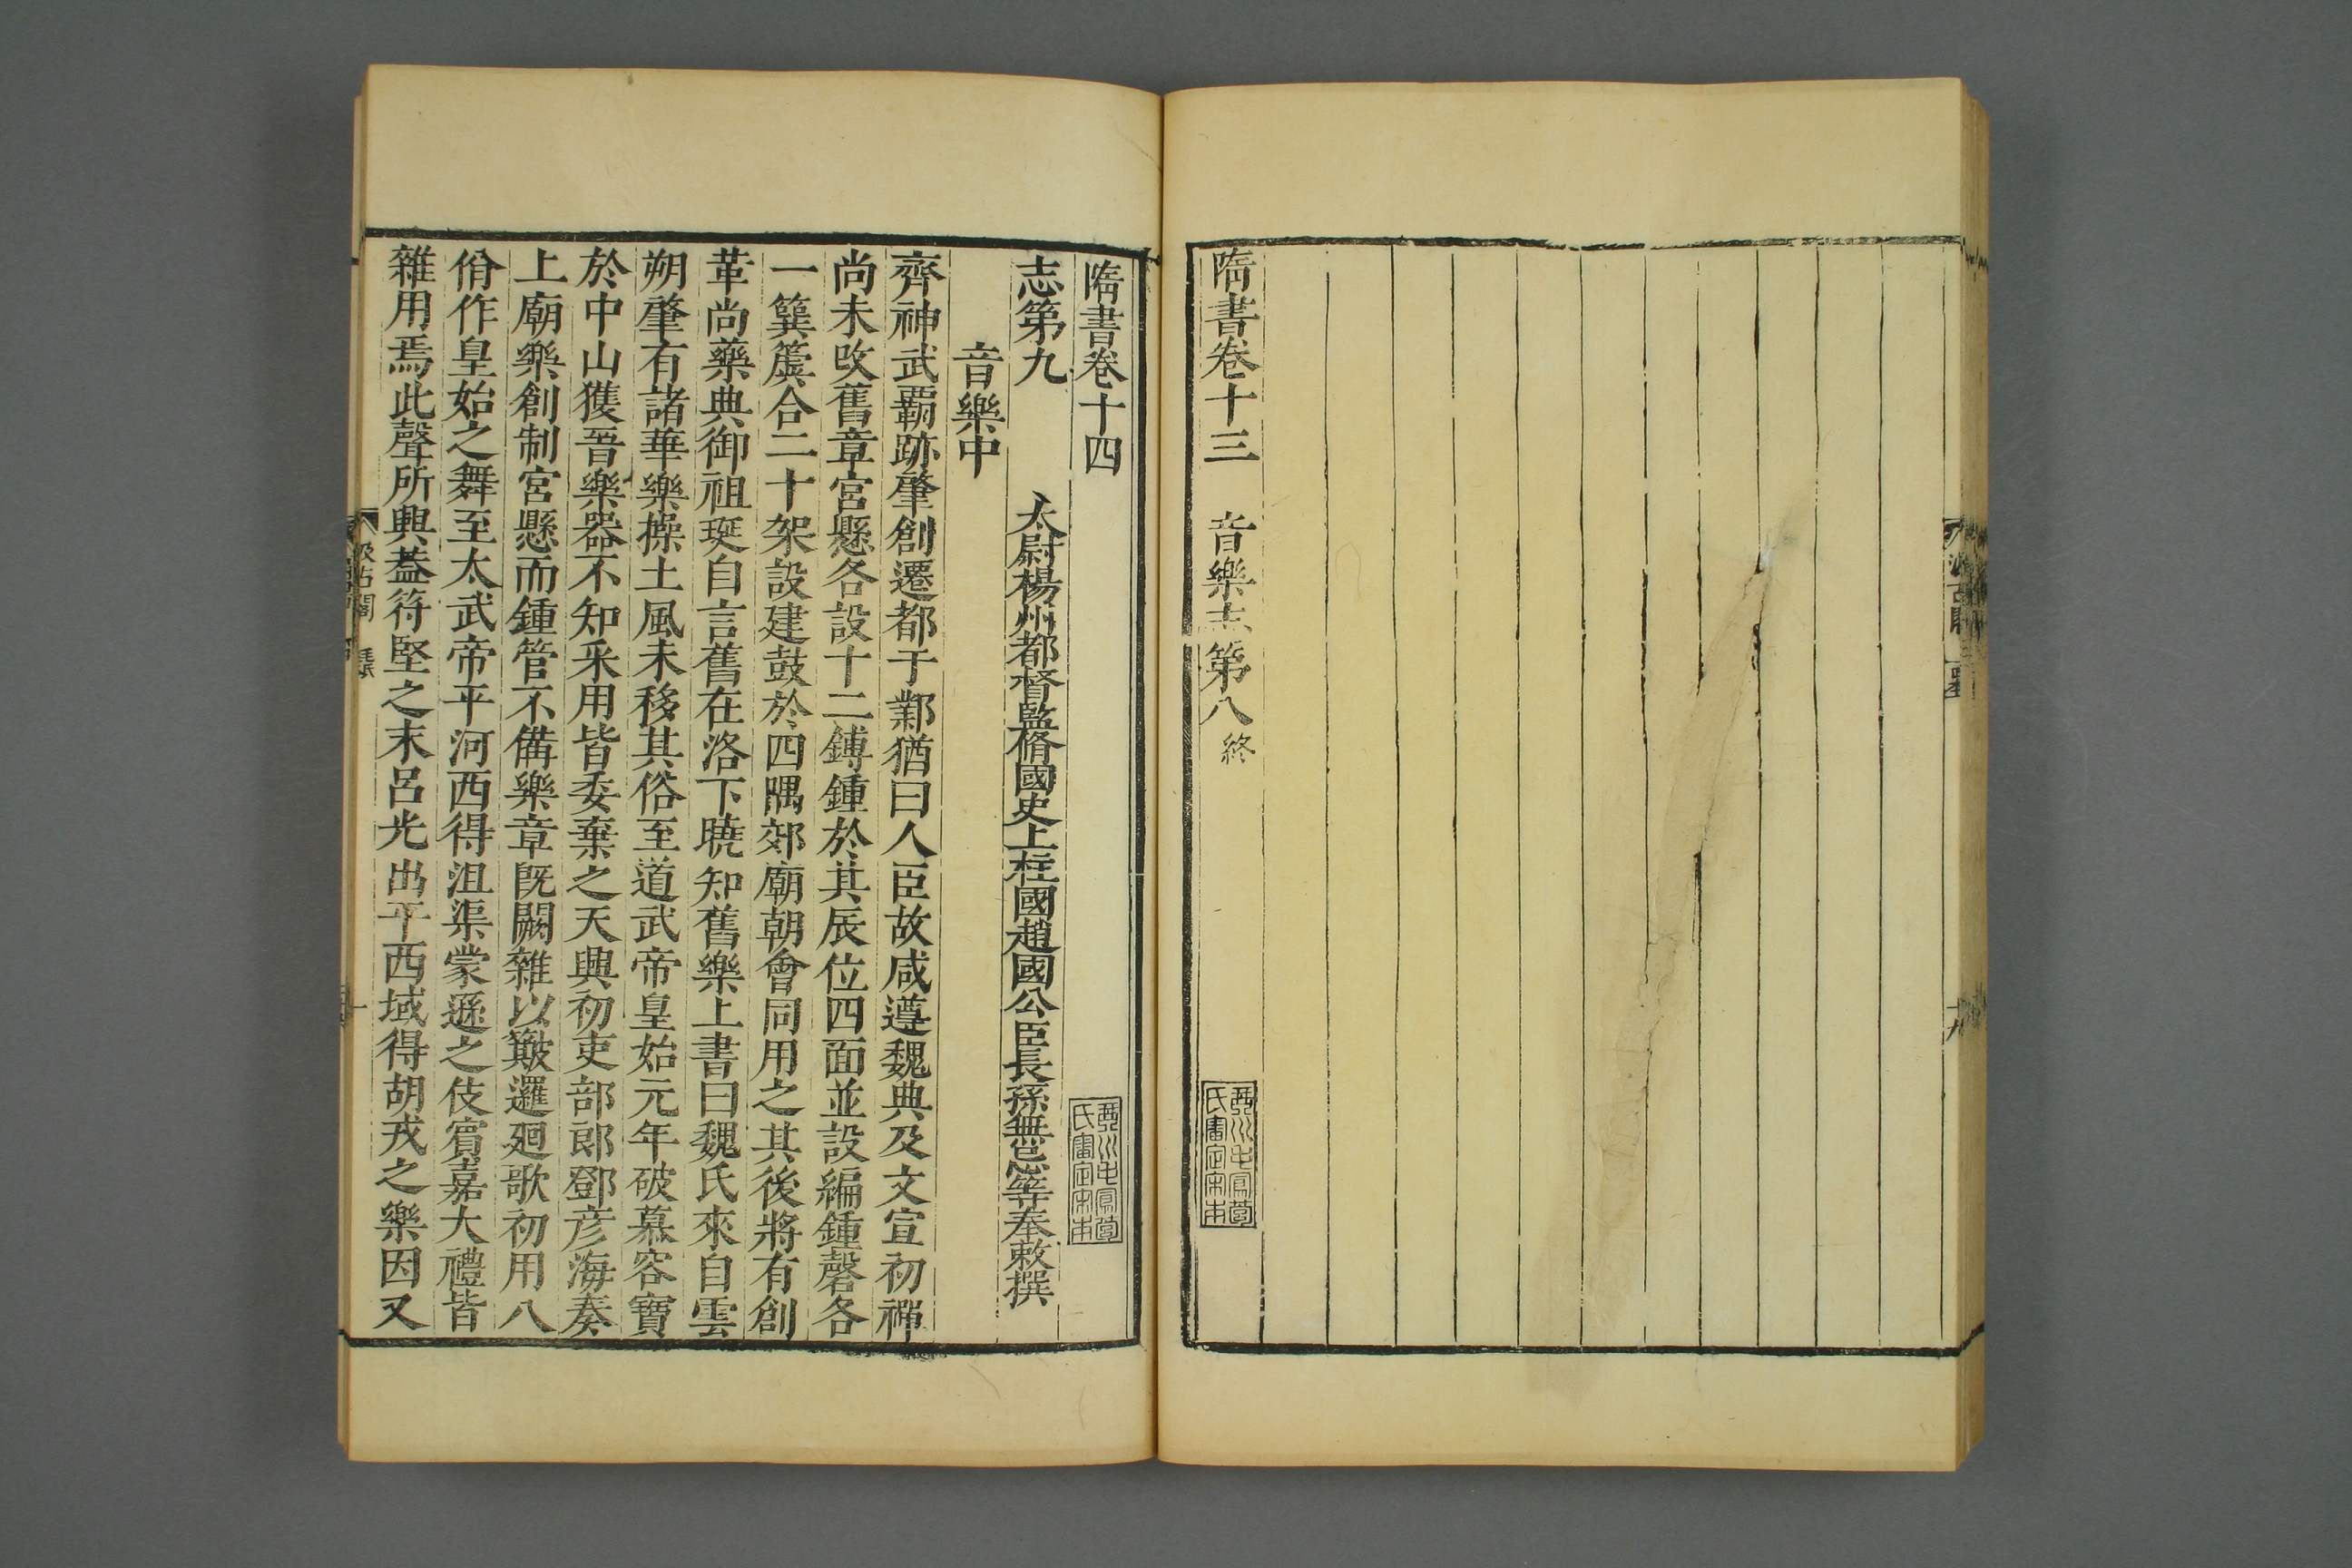 隋書卷十三　音樂志第八終
隋書卷十四
志第九　太尉楊州都督監脩國史上柱國趙國公臣長孫無忌等奉敕撰
音樂中
齊神武覇跡肇創遷都于鄴猶曰人臣故咸遵魏典及文宣初禪
尚未改舊章宮懸各設十二鎛鍾於其辰位四面並設編鍾磬各
一簨簴合二十架設建鼓於四隅郊廟朝會同用之其後將有創
革尚藥典御祖珽自言舊在洛下曉知舊樂上書曰魏氏來自雲
朔肇有諸華樂操土風未移其俗至道武帝皇始元年破慕容寶
於中山獲晉樂器不知采用皆委棄之天興初吏部郎鄧彦海奏
上廟樂創制宮懸而鍾管不備樂章旣闕雜以簸邏迴歌初用八
佾作皇始之舞至太武帝平河西得沮渠蒙遜之伎賓嘉大禮皆
雜用焉此聲所興蓋苻堅之末呂光出平西域得胡戎之樂因又
汲古閣